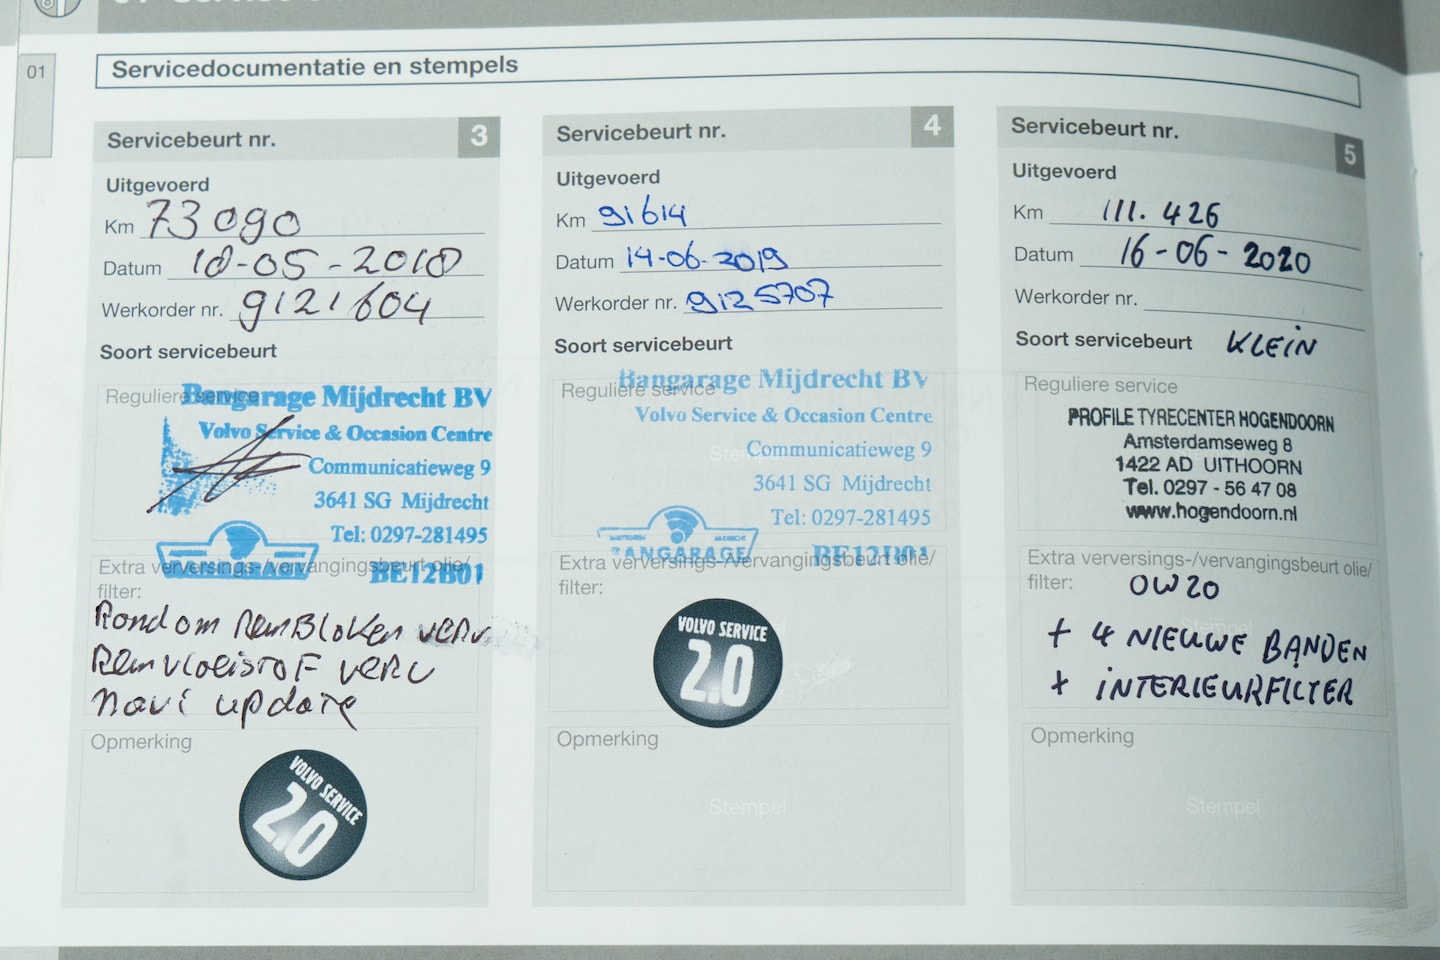 01
Servicedocumentatie en stempels
Servicebeurt nr. 3
Uitgevoerd
Km 73090
Datum 10-05-2018
Werkorder nr. 9121604
Soort servicebeurt
Reguliere service
Bangarage Mijdrecht BV
Volvo Service & Occasion Centre
Communicatieweg 9
3641 SG Mijdrecht
Tel: 0297-281495
BE12B01
Extra verversings-/vervangingsbeurt olie/
filter:
Rondom RemBlokken verv
Remvloeistof verv
navi update
Opmerking
VOLVO SERVICE
2.0
Servicebeurt nr. 4
Uitgevoerd
Km 91614
Datum 14-06-2019
Werkorder nr. 9125707
Soort servicebeurt
Reguliere service
Bangarage Mijdrecht BV
Volvo Service & Occasion Centre
Stempel
Communicatieweg 9
3641 SG Mijdrecht
Tel: 0297-281495
BANGARAGE
BE12B01
Extra verversings-/vervangingsbeurt olie/
filter:
VOLVO SERVICE
2.0
Opmerking
Stempel
Servicebeurt nr. 5
Uitgevoerd
Km 111.426
Datum 16-06-2020
Werkorder nr.
Soort servicebeurt KLEIN
Reguliere service
PROFILE TYRECENTER HOGENDOORN
Amsterdamseweg 8
1422 AD UITHOORN
Tel. 0297 - 56 47 08
www.hogendoorn.nl
Extra verversings-/vervangingsbeurt olie/
filter: 0W20
+ 4 NIEUWE BANDEN
+ INTERIEURFILTER
Opmerking
Stempel